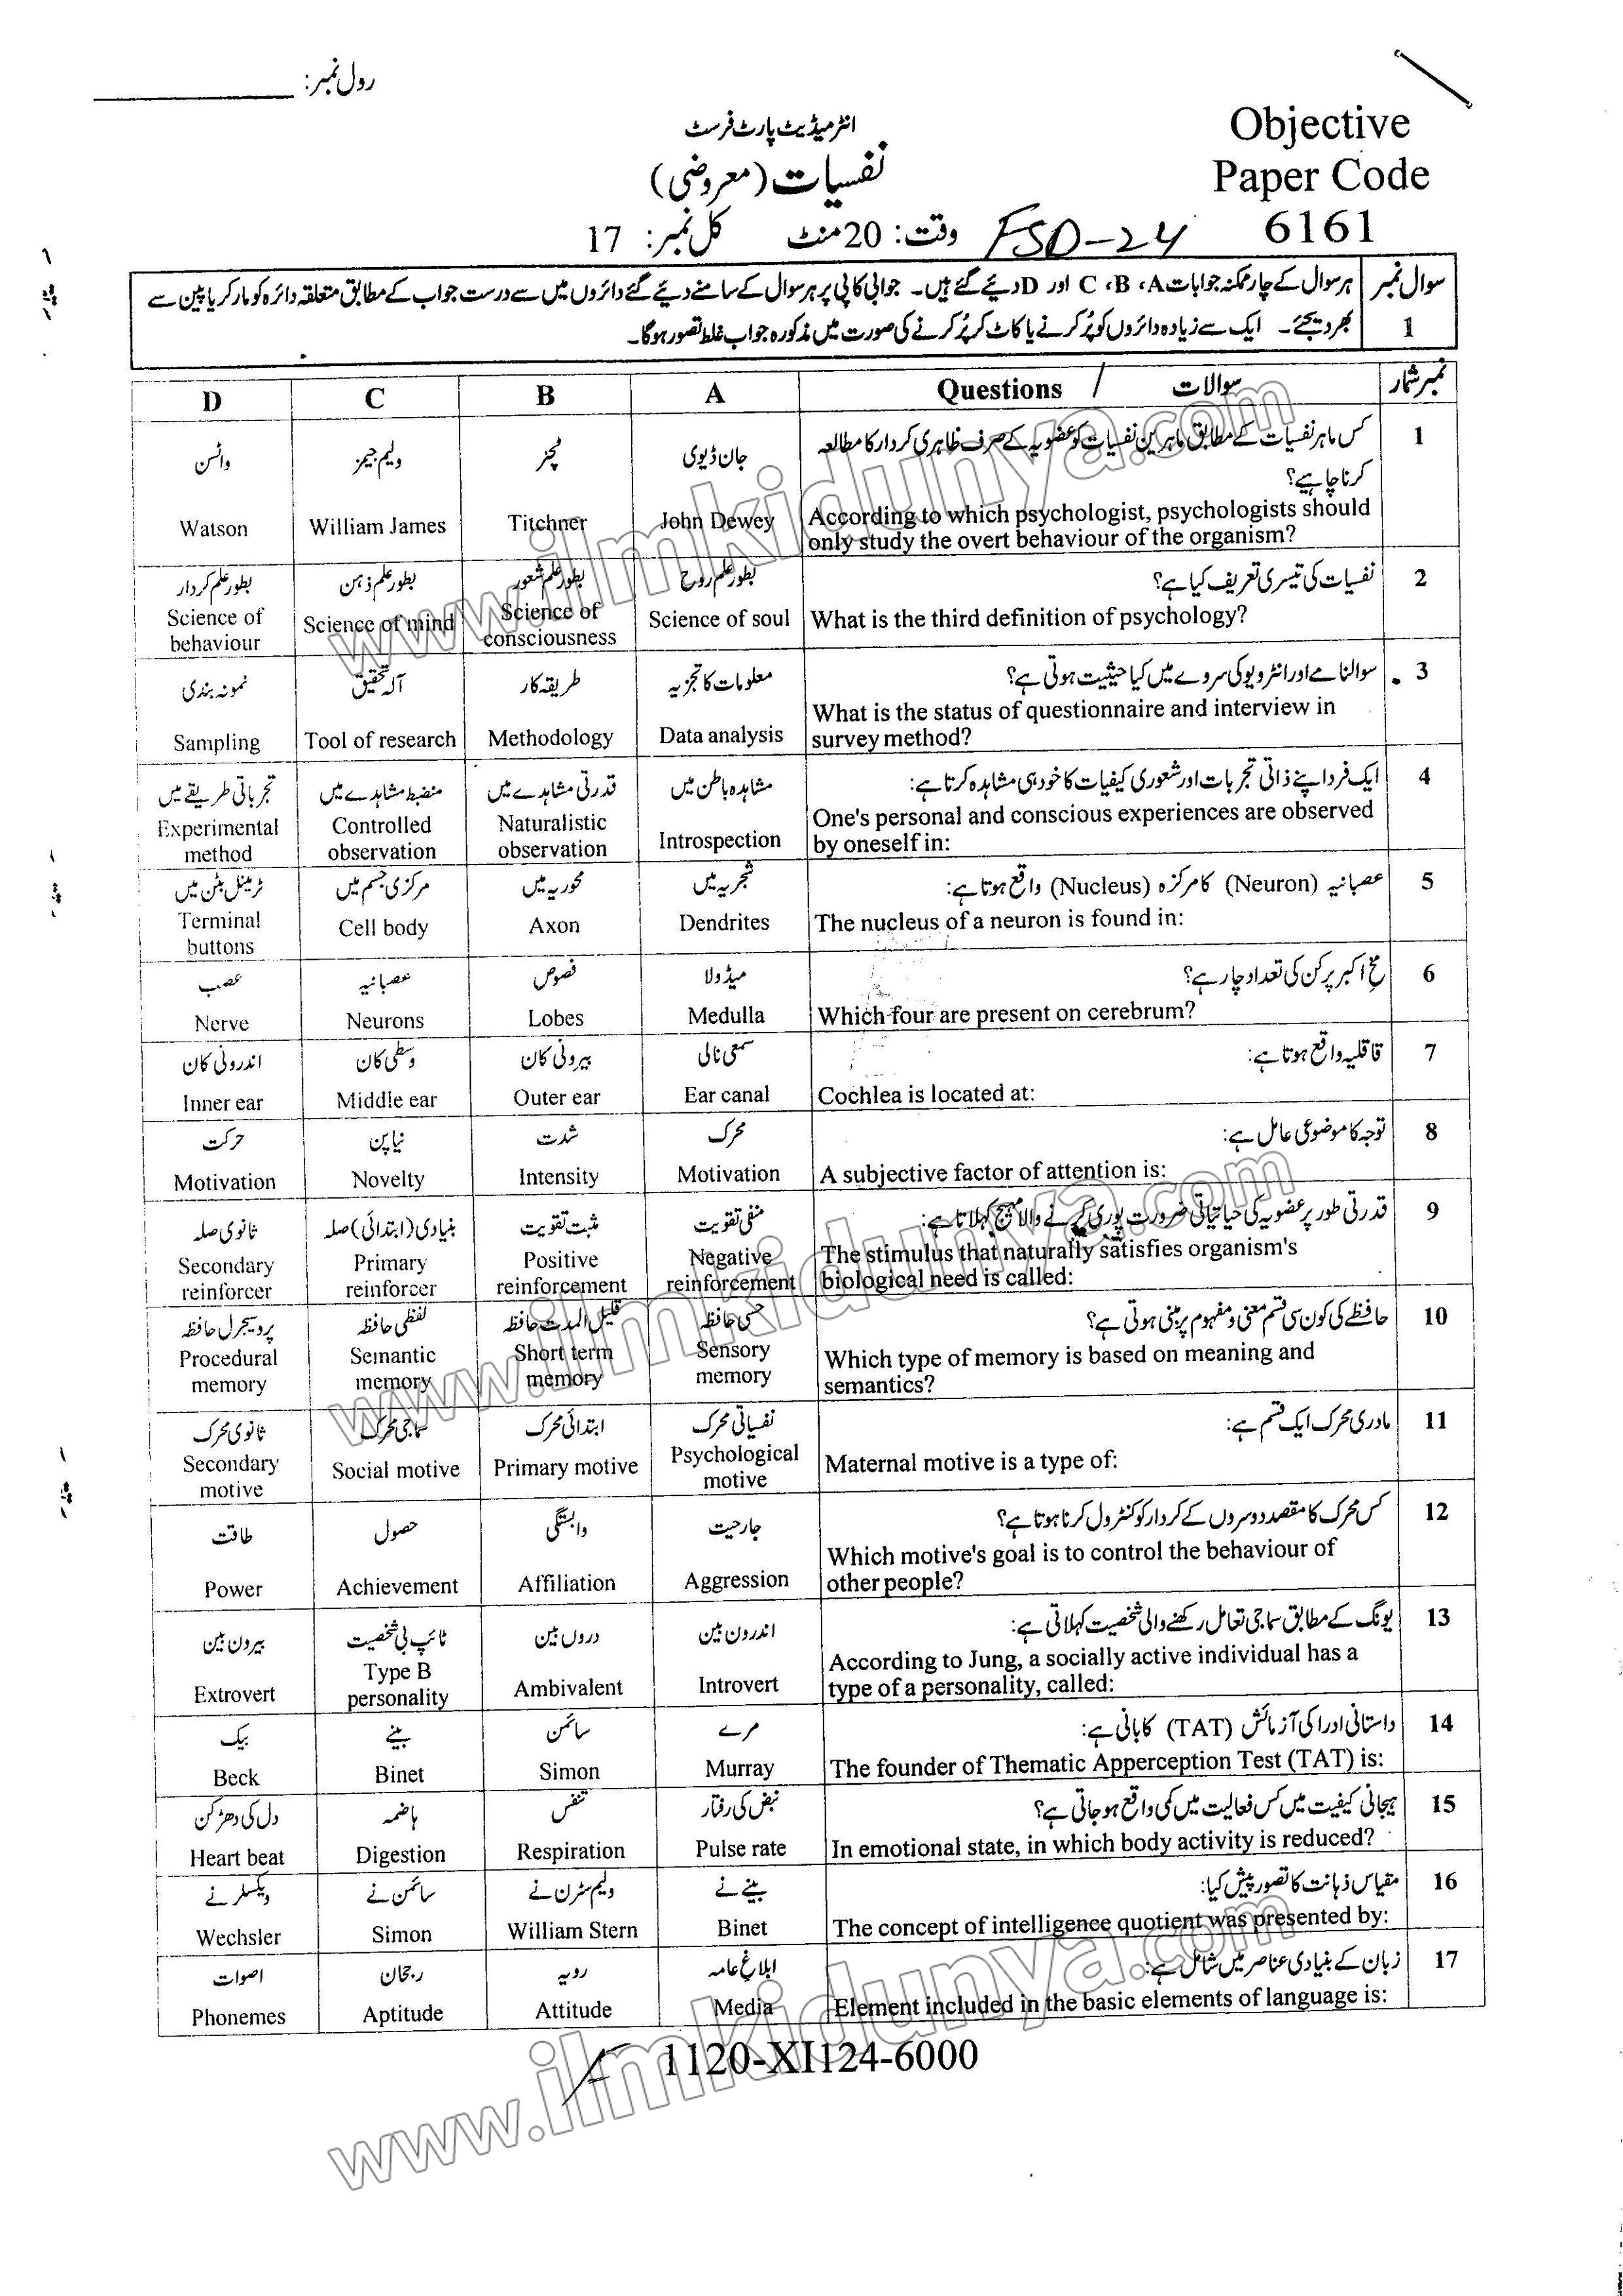 رول نمبر:
انٹرمیڈیٹ پارٹ فرسٹ
Objective
نفسیات (معروضی)
Paper Code
وقت: 20 منٹ کل نمبر: 17
FSD-24
6161
سوال نمبر 1
ہر سوال کے چار ممکنہ جوابات A، B، C اور D دیئے گئے ہیں۔ جوابی کاپی پر ہر سوال کے سامنے دیئے گئے دائروں میں سے درست جواب کے مطابق متعلقہ دائرہ کو مارکر یا پین سے
بھر دیجئے۔ ایک سے زیادہ دائروں کو پُر کرنے یا کاٹ کر پُر کرنے کی صورت میں مذکورہ جواب غلط تصور ہوگا۔
نمبر شمار سوالات / Questions A B C D
1 کس ماہر نفسیات کے مطابق ماہرین نفسیات کو عضویہ کے صرف ظاہری کردار کا مطالعہ
کرنا چاہیے؟
جان ڈیوی ٹچنر ولیم جیمز واٹسن
According to which psychologist, psychologists should
only study the overt behaviour of the organism?
John Dewey Titchner William James Watson
2 نفسیات کی تیسری تعریف کیا ہے؟
بطور علم روح بطور علم شعور بطور علم ذہن بطور علم کردار
What is the third definition of psychology?
Science of soul
Science of
consciousness
Science of mind
Science of
behaviour
3 سوالنامے اور انٹرویو کی سروے میں کیا حیثیت ہوتی ہے؟
معلومات کا تجزیہ طریقہ کار آلہ تحقیق نمونہ بندی
What is the status of questionnaire and interview in
survey method?
Data analysis Methodology Tool of research Sampling
4 ایک فرد اپنے ذاتی تجربات اور شعوری کیفیات کا خود ہی مشاہدہ کرتا ہے:
مشاہدہ باطن میں قدرتی مشاہدے میں منضبط مشاہدے میں تجرباتی طریقے میں
One's personal and conscious experiences are observed
by oneself in:
Introspection
Naturalistic
observation
Controlled
observation
Experimental
method
5 عصبانیہ (Neuron) کا مرکزہ (Nucleus) واقع ہوتا ہے:
شجریہ میں محوریہ میں مرکزی جسم میں ٹرمینل بٹن میں
The nucleus of a neuron is found in:
Dendrites Axon Cell body
Terminal
buttons
6 مخ اکبر پر کن کی تعداد چار ہے؟
میڈولا فصوص عصبانیہ عصب
Which four are present on cerebrum?
Medulla Lobes Neurons Nerve
7 قاقلیہ واقع ہوتا ہے:
سمعی نالی بیرونی کان وسطی کان اندرونی کان
Cochlea is located at:
Ear canal Outer ear Middle ear Inner ear
8 توجہ کا موضوعی عامل ہے:
محرک شدت نیا پن حرکت
A subjective factor of attention is:
Motivation Intensity Novelty Motivation
9 قدرتی طور پر عضویہ کی حیاتیاتی ضرورت پوری کرنے والا مہیج کہلاتا ہے:
منفی تقویت مثبت تقویت بنیادی (ابتدائی) صلہ ثانوی صلہ
The stimulus that naturally satisfies organism's
biological need is called:
Negative
reinforcement
Positive
reinforcement
Primary
reinforcer
Secondary
reinforcer
10 حافظے کی کون سی قسم معنی و مفہوم پر مبنی ہوتی ہے؟
حسی حافظہ قلیل المدت حافظہ لفظی حافظہ پروسیجرل حافظہ
Which type of memory is based on meaning and
semantics?
Sensory
memory
Short term
memory
Semantic
memory
Procedural
memory
11 مادری محرک ایک قسم ہے:
نفسیاتی محرک ابتدائی محرک سماجی محرک ثانوی محرک
Maternal motive is a type of:
Psychological
motive
Primary motive Social motive
Secondary
motive
12 کس محرک کا مقصد دوسروں کے کردار کو کنٹرول کرنا ہوتا ہے؟
جارحیت وابستگی حصول طاقت
Which motive's goal is to control the behaviour of
other people?
Aggression Affiliation Achievement Power
13 یونگ کے مطابق سماجی تعامل رکھنے والی شخصیت کہلاتی ہے:
اندرون بین دروں بین ٹائپ بی شخصیت بیرون بین
According to Jung, a socially active individual has a
type of a personality, called:
Introvert Ambivalent
Type B
personality
Extrovert
14 داستانی ادراکی آزمائش (TAT) کا بانی ہے:
مرے سائمن بینے بیک
The founder of Thematic Apperception Test (TAT) is:
Murray Simon Binet Beck
15 ہیجانی کیفیت میں کس فعالیت میں کمی واقع ہو جاتی ہے؟
نبض کی رفتار تنفس ہاضمہ دل کی دھڑکن
In emotional state, in which body activity is reduced?
Pulse rate Respiration Digestion Heart beat
16 مقیاس ذہانت کا تصور پیش کیا:
بینے نے ولیم سٹرن نے سائمن نے ویکسلر نے
The concept of intelligence quotient was presented by:
Binet William Stern Simon Wechsler
17 زبان کے بنیادی عناصر میں شامل ہے:
ابلاغ عامہ رویہ رجحان اصوات
Element included in the basic elements of language is:
Media Attitude Aptitude Phonemes
1120-XI124-6000
www.ilmkidunya.com
www.ilmkidunya.com
www.ilmkidunya.com